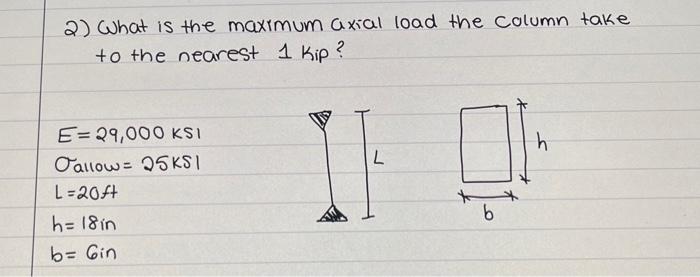 2) What is the maximum axial load the column take
to the nearest 1 kip?
E = 29,000 KSI
σallow = 25KSI
L = 20ft
h = 18in
b = 6in
L
h
b